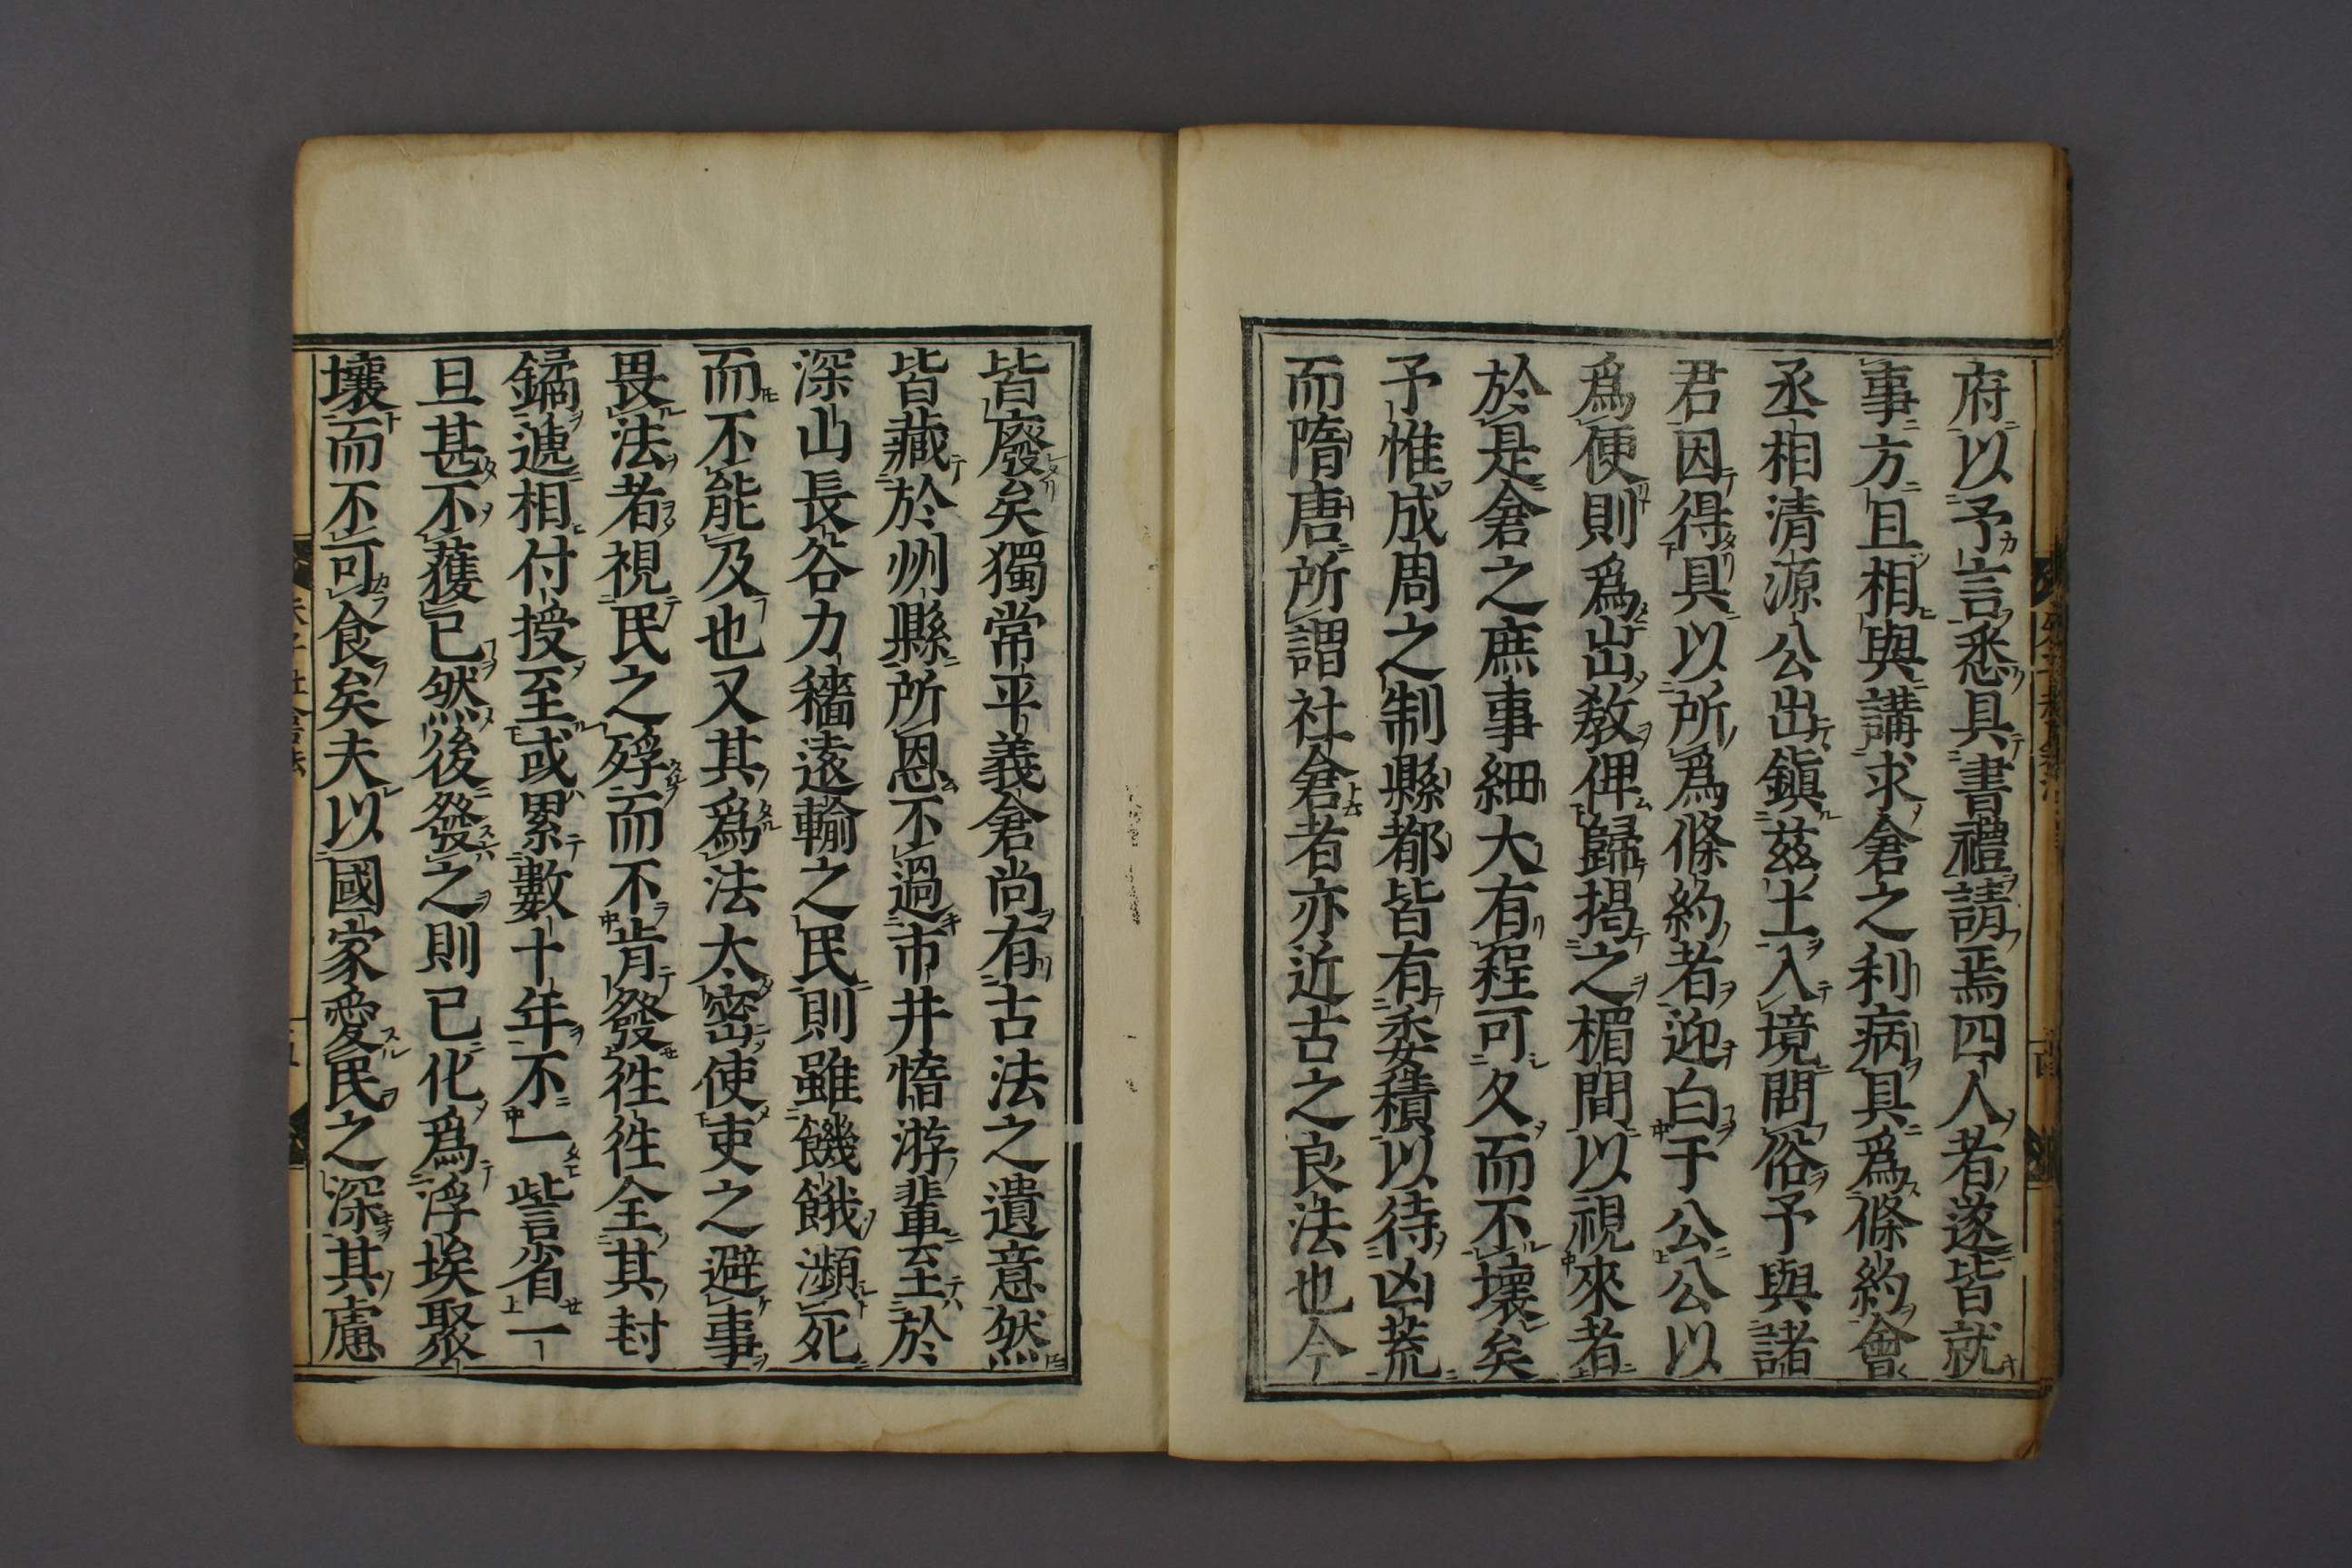 府以予言悉具書禮請焉四人者遂皆就
事方且相與講求倉之利病具爲條約會
丞相清源公出鎭茲土入境問俗予與諸
君因得具以所爲條約者迎白于公公以
爲便則爲出教俾歸揭之楣間以視來者
於是倉之庶事細大有程可久而不壞矣
予惟成周之制縣都皆有委積以待凶荒
而隋唐所謂社倉者亦近古之良法也今
皆廢矣獨常平義倉尚有古法之遺意然
皆藏於州縣所恩不過市井惰游輩至於
深山長谷力穡遠輸之民則雖饑餓瀕死
而不能及也又其爲法太密使吏之避事
畏法者視民之殍而不肯發徃徃全其封
鐍遞相付授至或累數十年不一訾省一
旦甚不獲已然後發之則已化爲浮埃聚
壤而不可食矣夫以國家愛民之深其慮
朱子社倉法